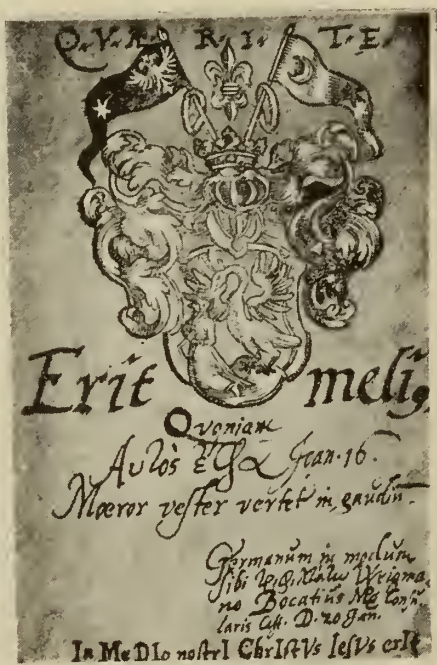 Q. V. A. R. I. T. E.
Erit meliꝰ
Quoniam
Αυτὸς ἔφα Joan. 16.
Mœror vester vertet in gaudiū.
Germanum in modum
sibi Weigma
no Bocatius Mg Consu
laris Cass. D. 20 Jan.
In MeDIo nostrI ChrIstVs Iesus erIt